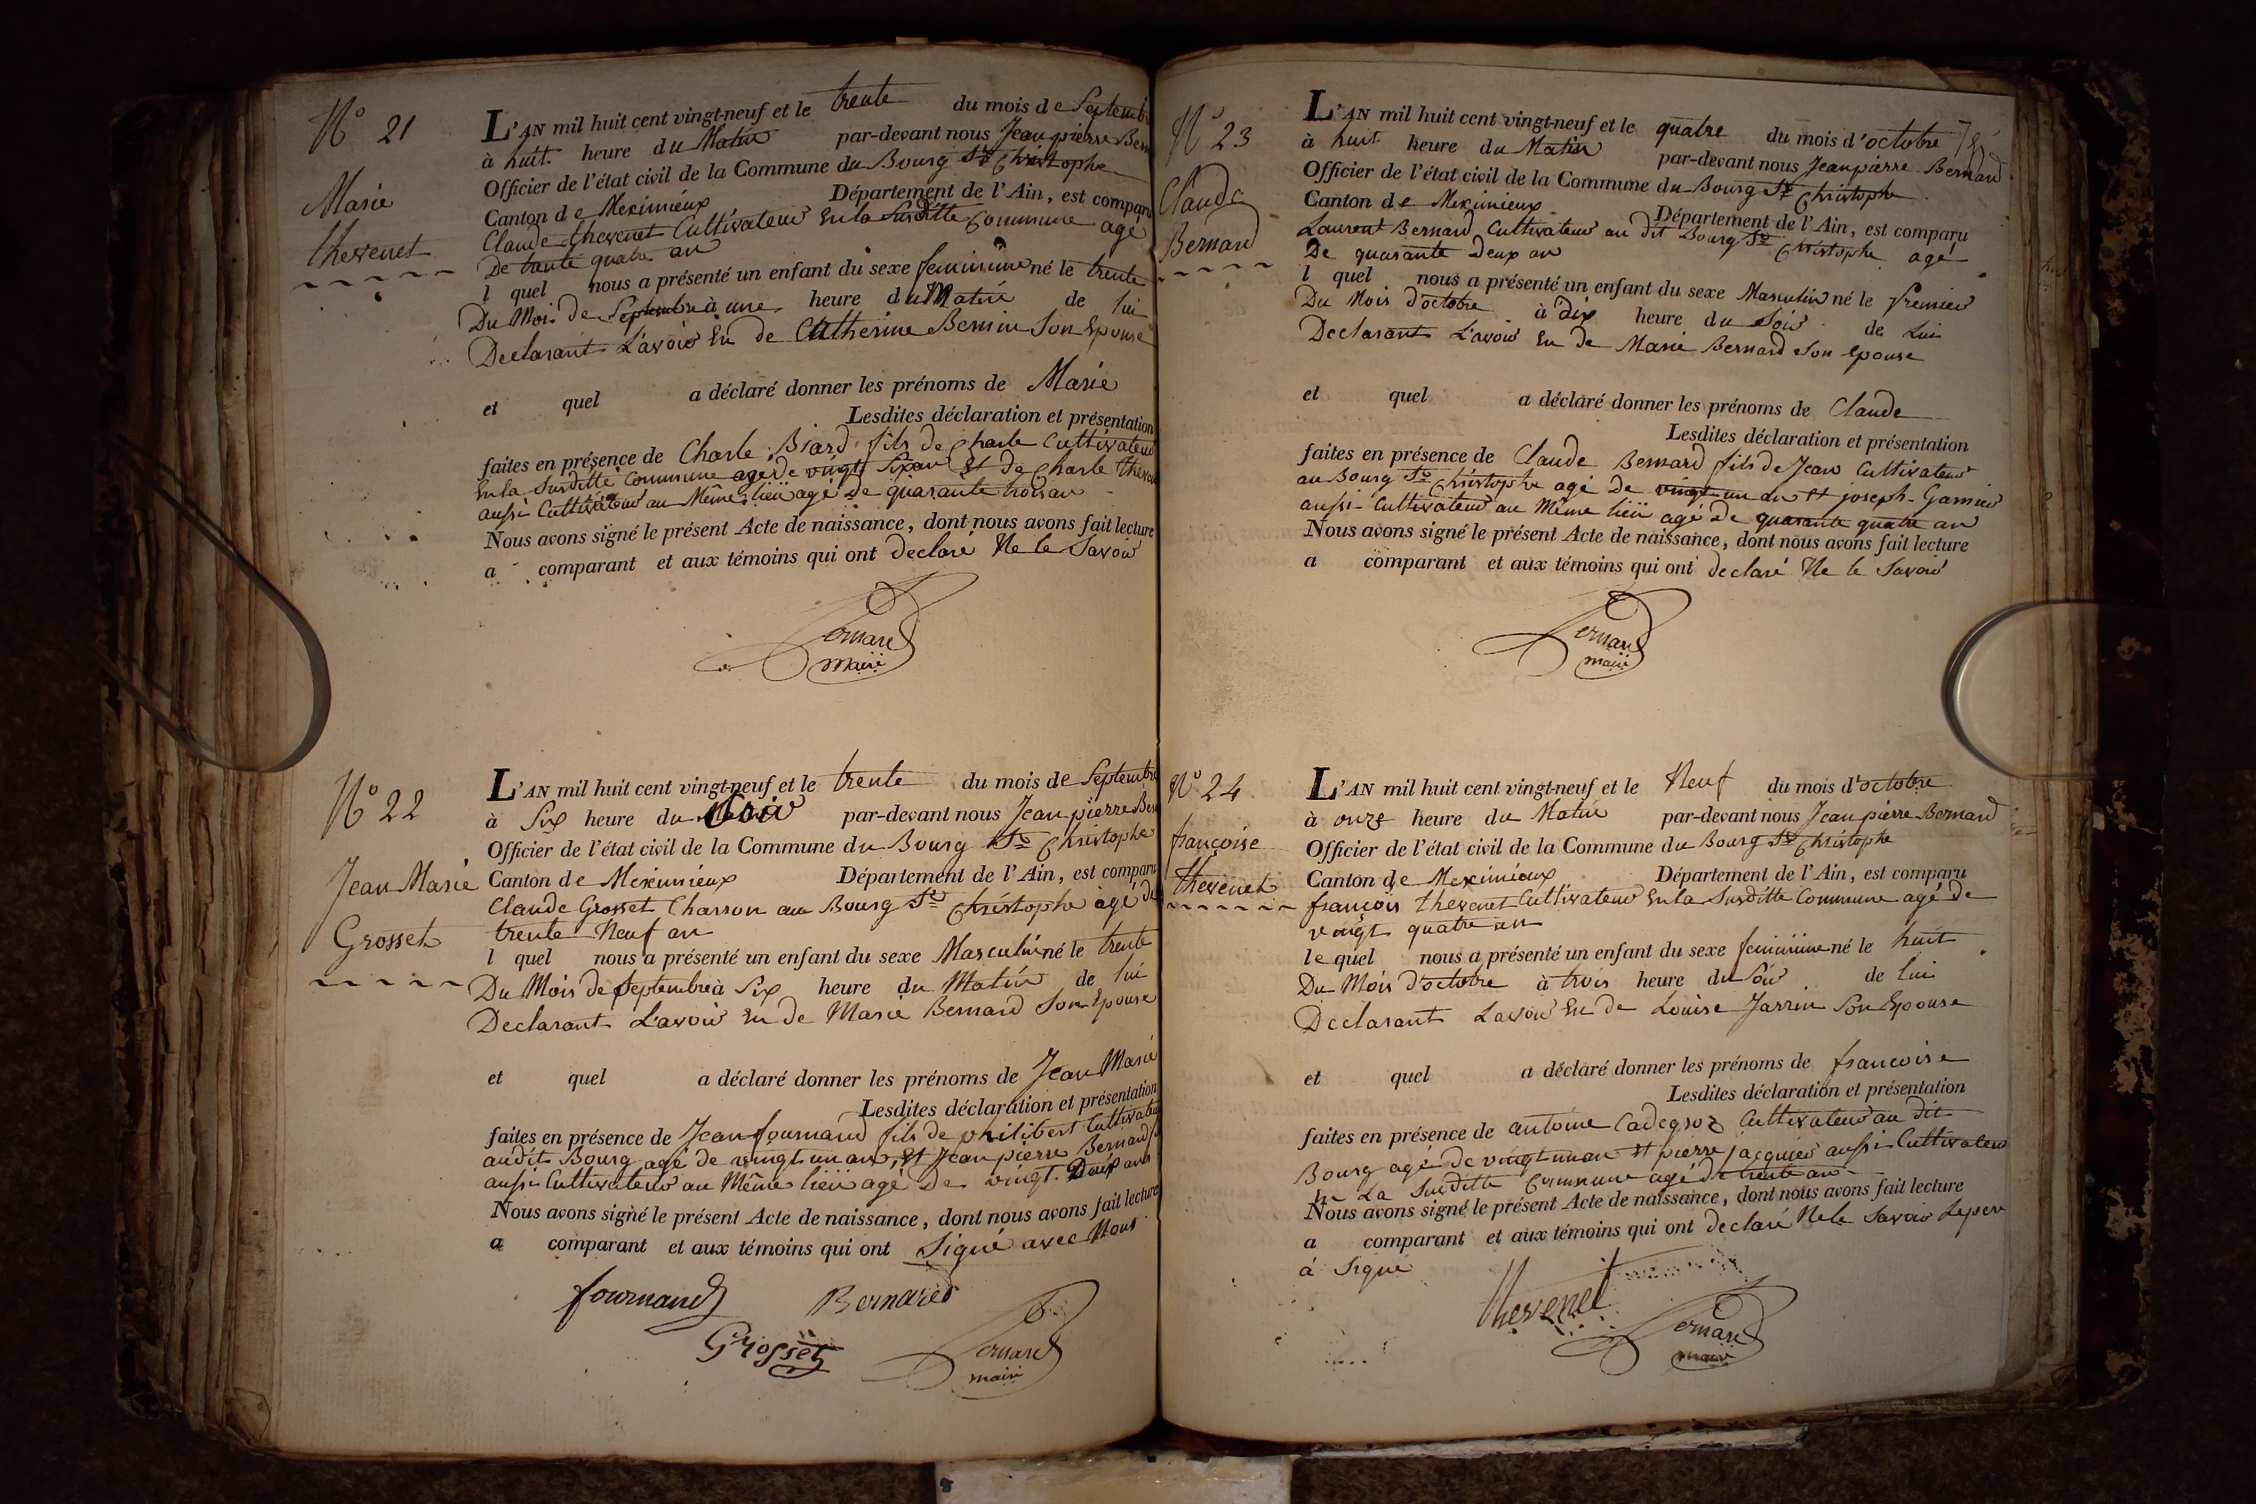 N° 21
Marie
thevenet
L'AN mil huit cent vingt-neuf et le trente du mois de Septemb
à huit heure du Matin par-devant nous Jean pierre Bern
Officier de l'état civil de la Commune du Bourg St Christophe
Canton de Meximieux Département de l'Ain, est comparu
Claude thevenet Cultivateur En la Surditte Commune agé
De trente quatre an
l quel nous a présenté un enfant du sexe feminime né le trente
Du Mois de Septembre à une heure du Matin de lui
Declarant L'avoir Eu de Catherine Bernin Son Epouse
et quel a déclaré donner les prénoms de Marie
Lesdites déclaration et présentation
faites en présence de Charle Biard fils de Charle Cultivateur
En la Surditte Commune agé de vingt Six an Et de Charle theven
aussi Cultivateur au Même lieü agé de quarante trois an
Nous avons signé le présent Acte de naissance, dont nous avons fait lecture
a comparant et aux témoins qui ont declaré Ne le Savoir
Bernard
maire
N° 22
Jean Marie
Grosset
L'AN mil huit cent vingt-neuf et le trente du mois de Septembre
à Six heure du Soir par-devant nous Jean pierre Ber
Officier de l'état civil de la Commune du Bourg St Christophe
Canton de Meximieux Département de l'Ain, est comparu
Claude Grosset Charron au Bourg St Christophe âgé de
trente Neuf an
l quel nous a présenté un enfant du sexe Masculin né le trente
Du Mois de Septembre à Six heure du Matin de lui
Declarant L'avoir Eu de Marie Bernard Son Epouse
et quel a déclaré donner les prénoms de Jean Marie
Lesdites déclaration et présentation
faites en présence de Jean fournand fils de philibert Cultivateur
audit Bourg agé de vingt un an, Et Jean pierre Bernard
aussi Cultivateur au Même lieü agé De vingt Deux ans
Nous avons signé le présent Acte de naissance, dont nous avons fait lecture
a comparant et aux témoins qui ont Signé avec Nous
fournand Bernard
Grosset Bernard
maire
N° 23
Claude
Bernard
L'AN mil huit cent vingt-neuf et le quatre du mois d'octobre
à huit heure du Matin par-devant nous Jean pierre Bernard
Officier de l'état civil de la Commune du Bourg St Christophe
Canton de Meximieux Département de l'Ain, est comparu
Laurent Bernard Cultivateur au dit Bourg St Christophe agé
De quarante Deux an
l quel nous a présenté un enfant du sexe Masculin né le Premier
Du Mois d'octobre à dix heure du Soir de Lui
Declarant L'avoir Eu de Marie Bernard Son Epouse
et quel a déclaré donner les prénoms de Claude
Lesdites déclaration et présentation
faites en présence de Claude Bernard fils de Jean Cultivateur
au Bourg St Christophe agé de vingt un an Et joseph Garnier
aussi Cultivateur au Même lieü agé De quarante quatre an
Nous avons signé le présent Acte de naissance, dont nous avons fait lecture
a comparant et aux témoins qui ont declaré Ne le Savoir
Bernard
maire
N° 24
françoise
thevenet
L'AN mil huit cent vingt-neuf et le Neuf du mois d'octobre
à onze heure du Matin par-devant nous Jean pierre Bernard
Officier de l'état civil de la Commune du Bourg St Christophe
Canton de Meximieux Département de l'Ain, est comparu
françois thevenet Cultivateur En la Surditte Commune agé de
vingt quatre an
le quel nous a présenté un enfant du sexe feminime né le huit
Du Mois d'octobre à trois heure du Soir de lui
Declarant Lavoir Eu de Louise Jarrin Son Epouse
et quel a déclaré donner les prénoms de francoise
Lesdites déclaration et présentation
faites en présence de antoine Cadegroz Cultivateur au dit
Bourg agé de vingt un an Et pierre jacquier aussi Cultivateur
En La Surditte Commune agé de trente an
Nous avons signé le présent Acte de naissance, dont nous avons fait lecture
a comparant et aux témoins qui ont declaré Ne le Savoir Le pere
á Signé
thevenet
Bernard
maire